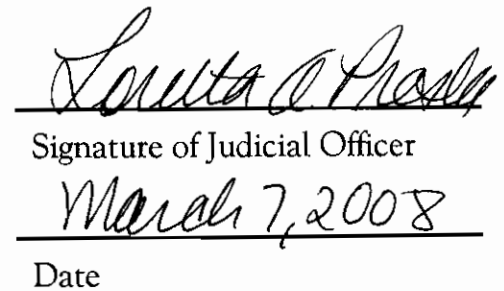 Loretta A Preska
Signature of Judicial Officer
March 7, 2008
Date